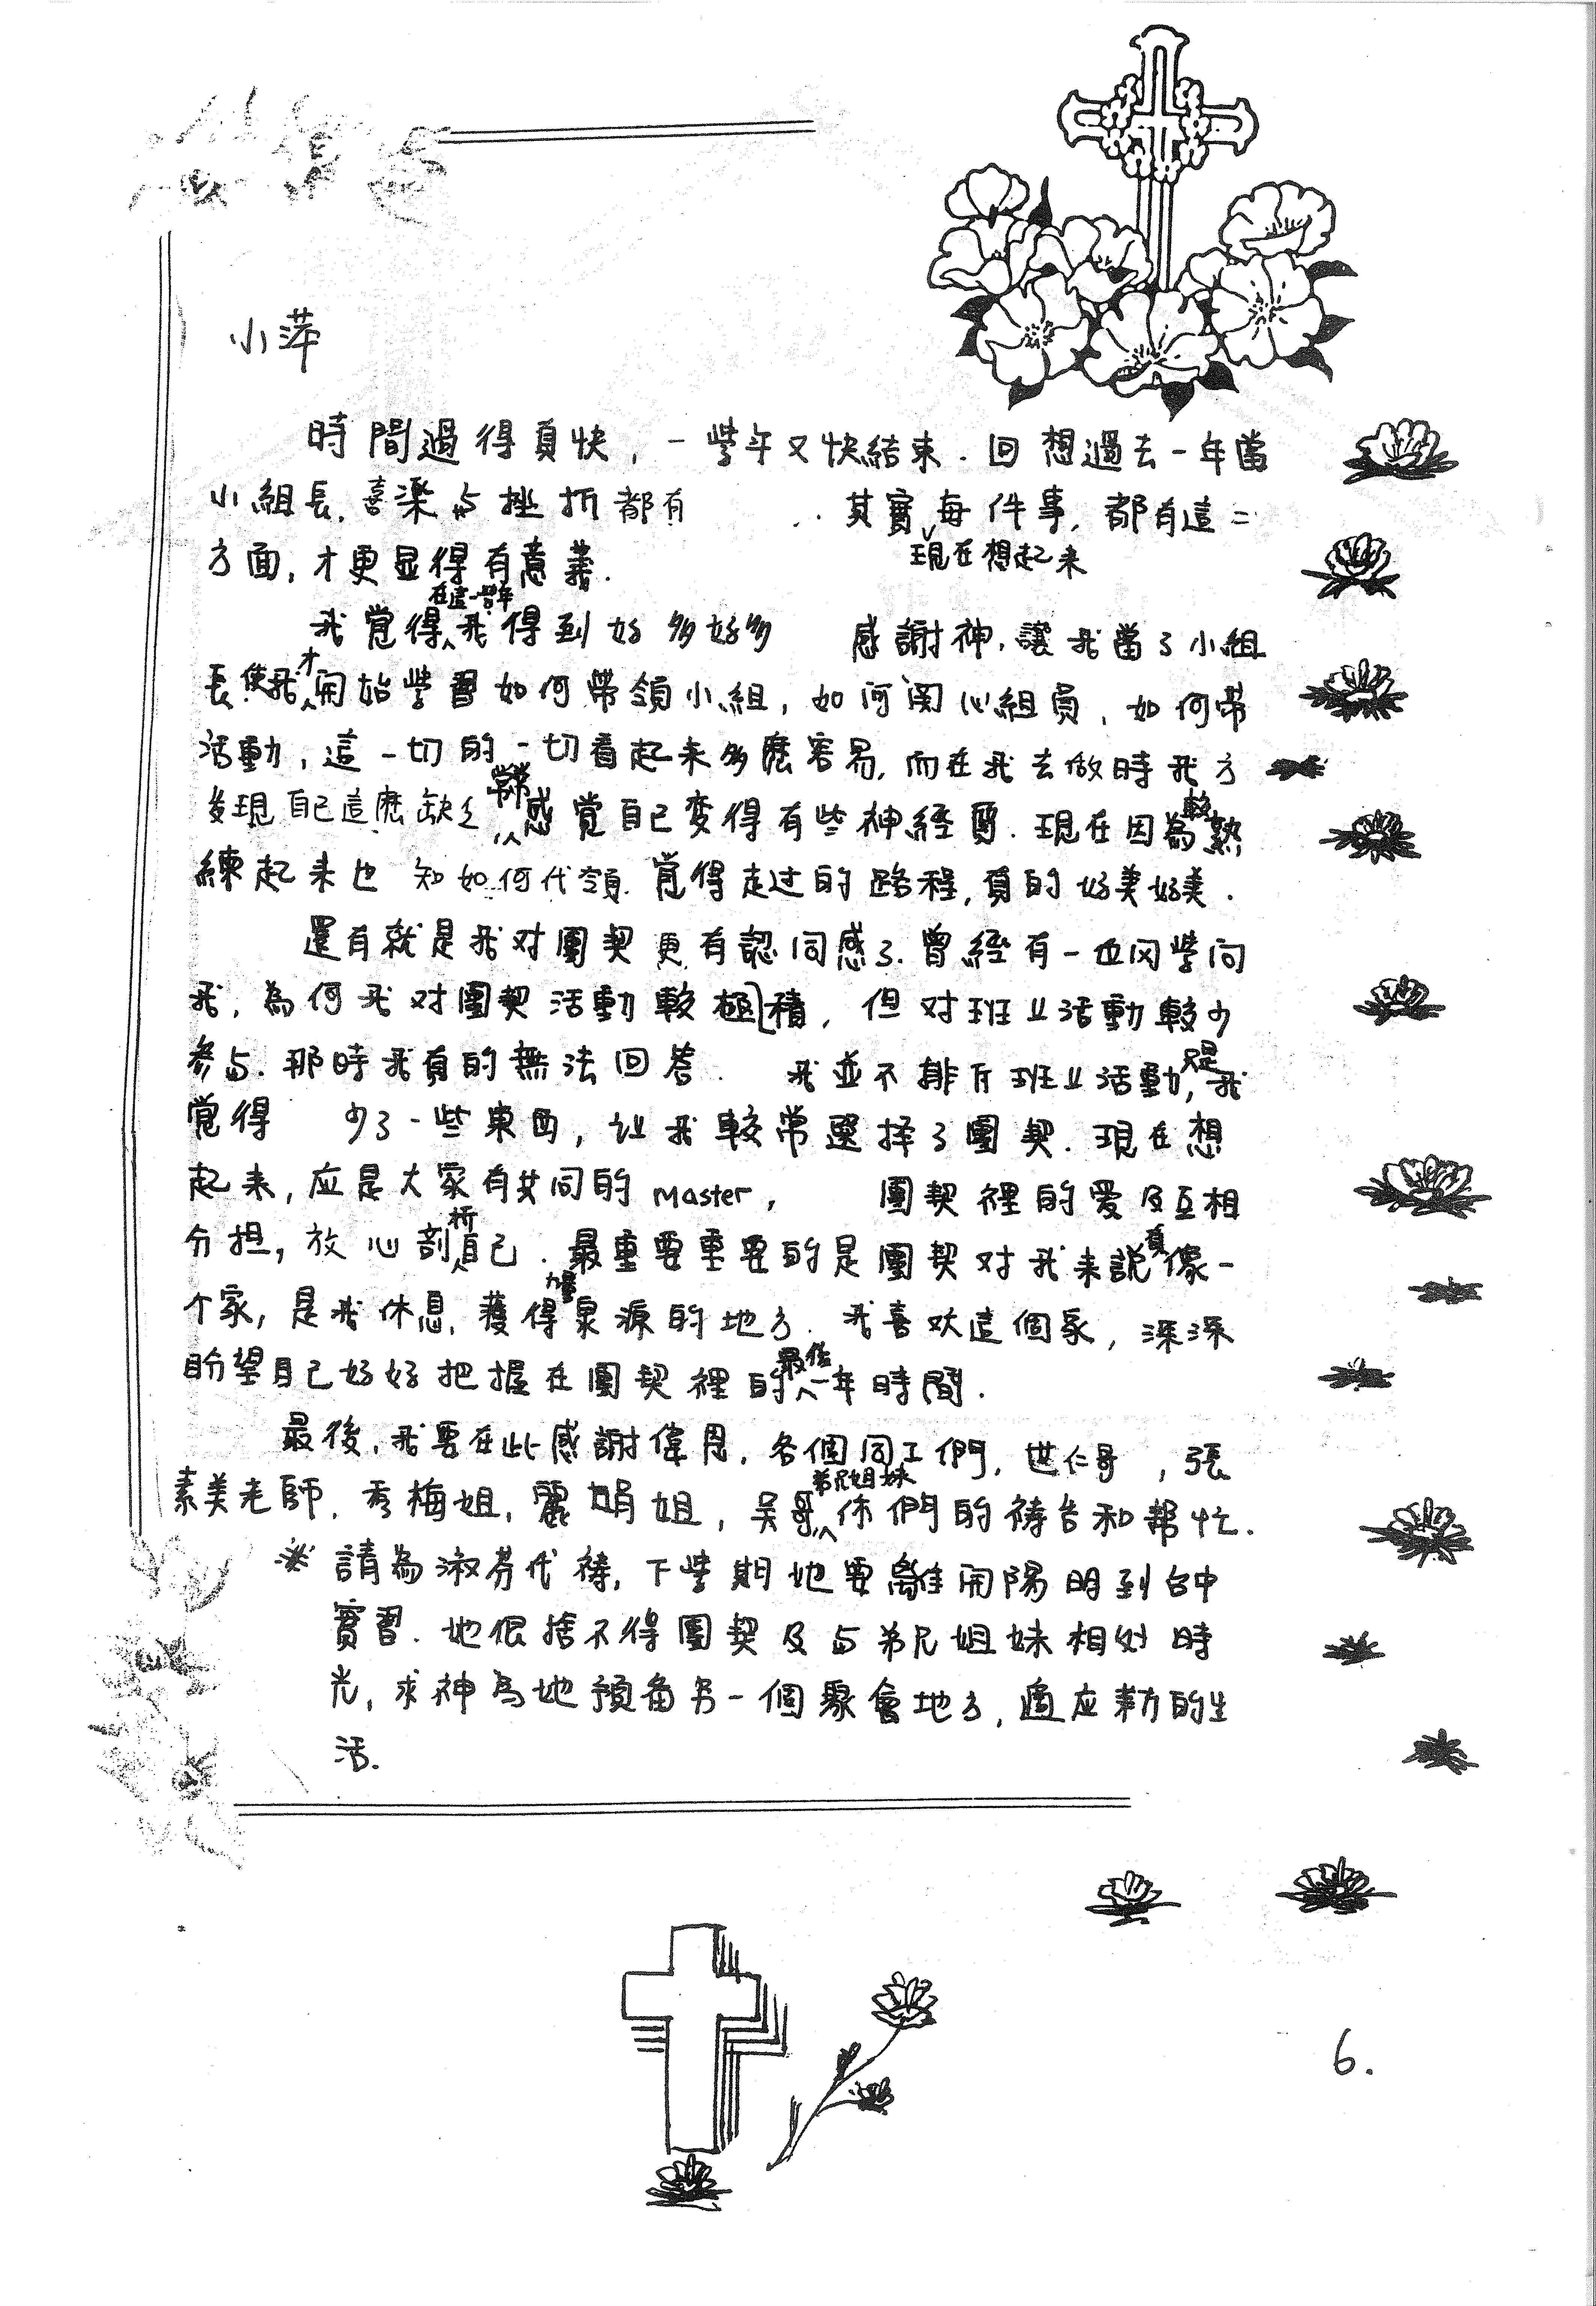 小萍
時間過得真快，一學年又快結束．回想過去一年當
小組長，喜樂与挫折都有 其實現在想起来每件事，都有這二
方面，才更显得有意義．
我覺得在這一學年我得到好多好多 感謝神，讓我當了小組
長，使我才開始學習如何帶領小組，如何関心組員，如何帶
活動，這一切的一切看起来多麽容易，而在我去做時我方
发現自己這麽缺乏 常常感覺自己变得有些神经質．現在因為較熟
練起来也知如何代領．覺得走过的路程，真的好美好美．
還有就是我对團契更有認同感了．曾經有一位同學问
我，為何我对團契活動較極積，但对班上活動較少
参与．那時我真的無法回答． 我並不排斥班上活動，只是我
覺得 少了一些東西，让我較常選择了團契．現在想
起来，应是大家有共同的 Master， 團契裡的爱及互相
分担，放心剖析自己．最重要重要的是團契对我来說真像一
个家，是我休息，獲得力量泉源的地方．我喜欢這個家，深深
盼望自己好好把握在團契裡的最後一年時間．
最後，我要在此感謝偉恩，各個同工們，世仁哥，張
素美老師，秀梅姐，麗娟姐，吴哥弟兄姐妹你們的祷告和幫忙．
※請為淑芬代祷，下學期她要離開陽明到台中
實習．她很捨不得團契及与弟兄姐妹相处時
光，求神為她預备另一個聚會地方，適应新的生
活．
6.